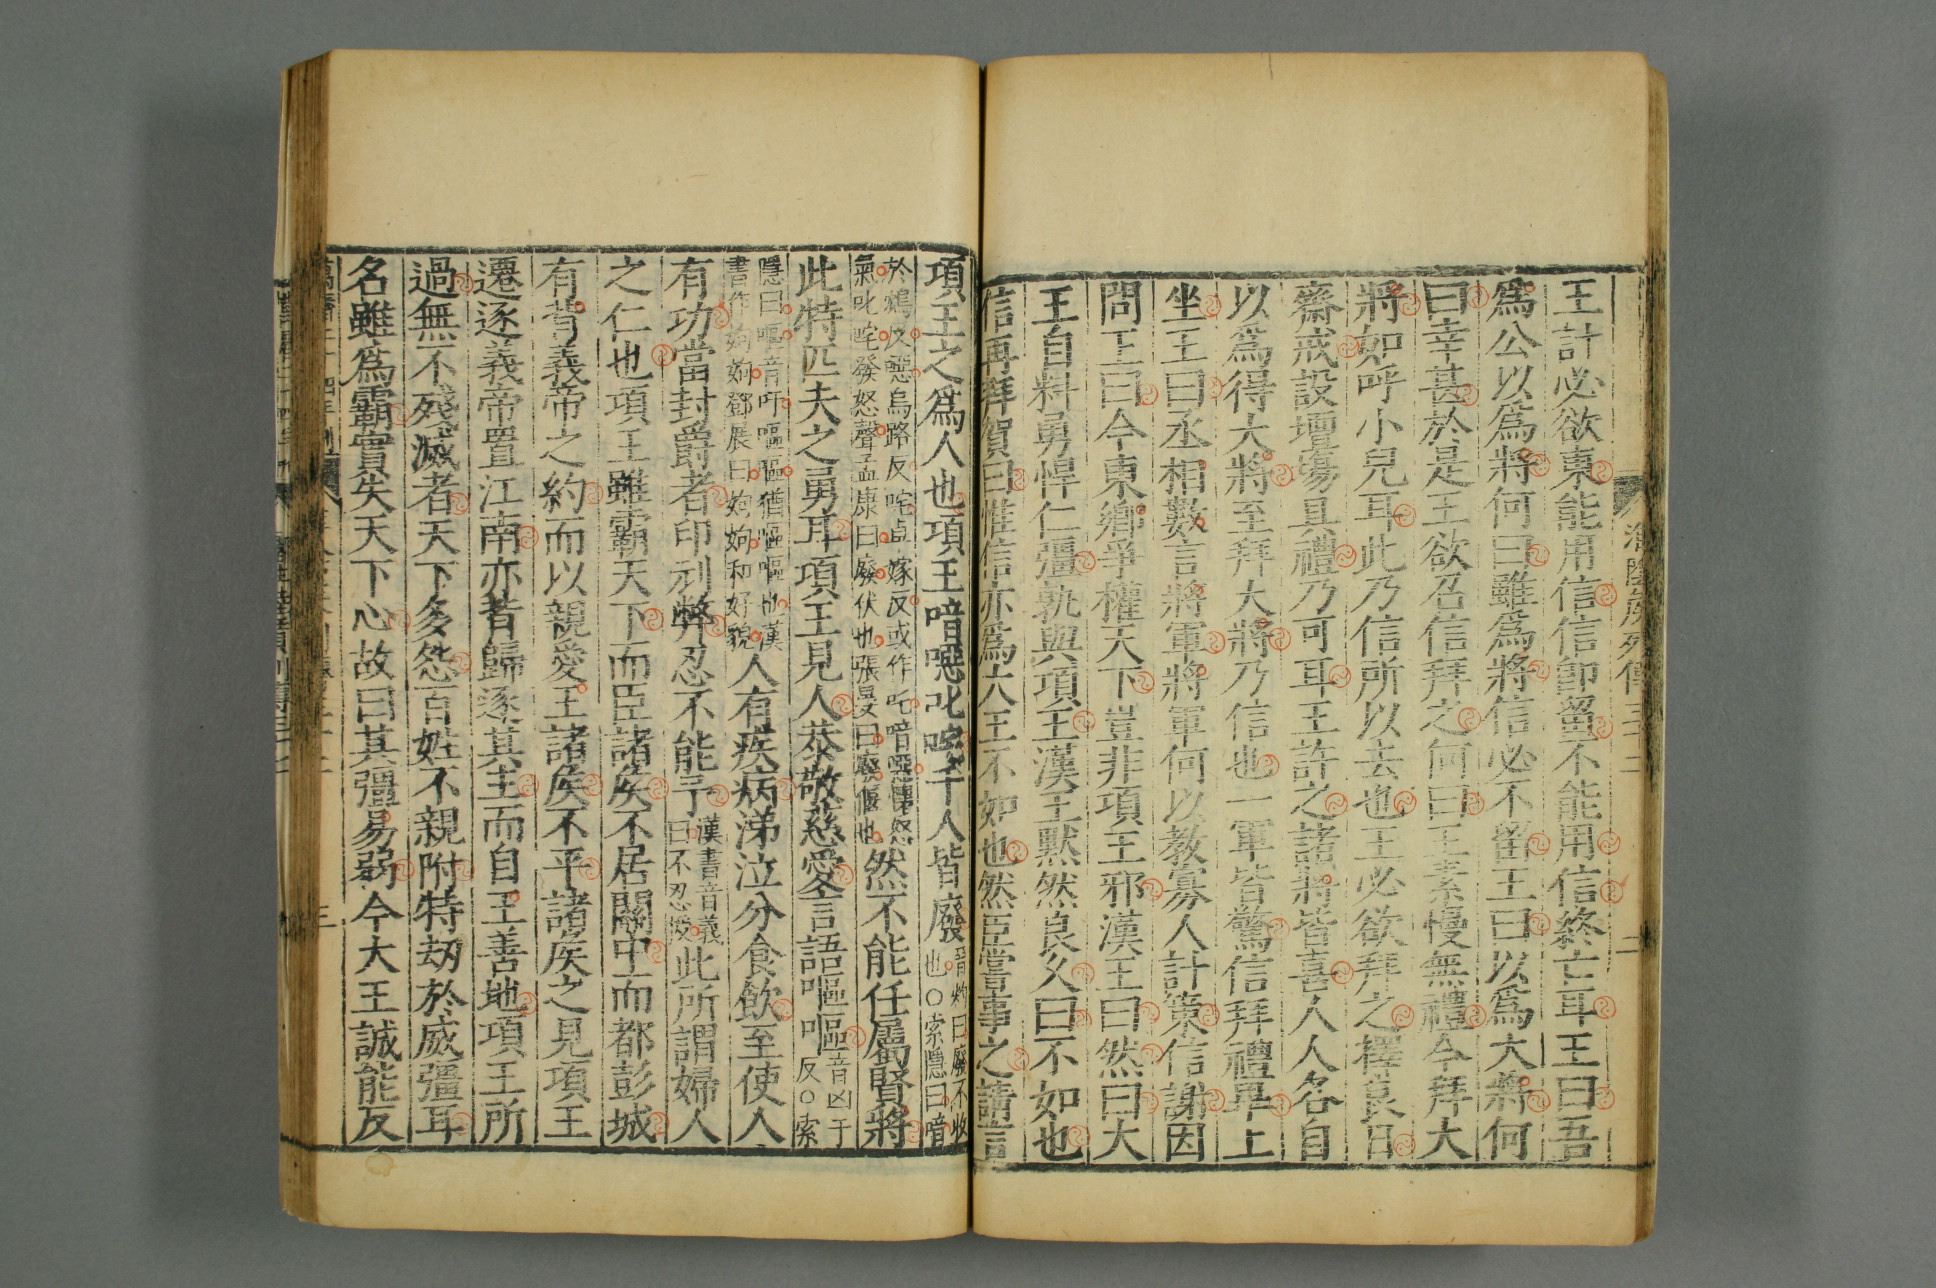 王計必欲東能用信信卽留不能用信終亡耳王曰吾
爲公以爲將何曰雖爲將信必不留王曰以爲大將何
曰幸甚於是王欲召信拜之何曰王素慢無禮今拜大
將如呼小兒耳此乃信所以去也王必欲拜之擇良日
齋戒設壇塲具禮乃可耳王許之諸將皆喜人人各自
以爲得大將至拜大將乃信也一軍皆驚信拜禮畢上
坐王曰丞相數言將軍將軍何以教寡人計策信謝因
問王曰今東鄉爭權天下豈非項王邪漢王曰然曰大
王自料勇悍仁彊孰與項王漢王默然良久曰不如也
信再拜賀曰惟信亦爲大王不如也然臣嘗事之請言
項王之爲人也項王喑噁叱咤千人皆廢晉灼曰廢不收也○索隱曰喑
於鴆反噁烏路反咤卓嫁反或作吒喑噁懷怒
氣叱咤發怒聲孟康曰廢伏也張晏曰廢偃也然不能任屬賢將
此特匹夫之勇耳項王見人恭敬慈愛言語嘔嘔音凶于反○索
隱曰嘔音吁嘔嘔猶嘔嘔也漢
書作姁姁鄧展曰姁姁和好貌人有疾病涕泣分食飲至使人
有功當封爵者印刓弊忍不能予漢書音義曰不忍授此所謂婦人
之仁也項王雖霸天下而臣諸侯不居關中而都彭城
有背義帝之約而以親愛王諸侯不平諸侯之見項王
遷逐義帝置江南亦皆歸逐其主而自王善地項王所
過無不殘滅者天下多怨百姓不親附特劫於威彊耳
名雖爲霸實失天下心故曰其彊易弱今大王誠能反